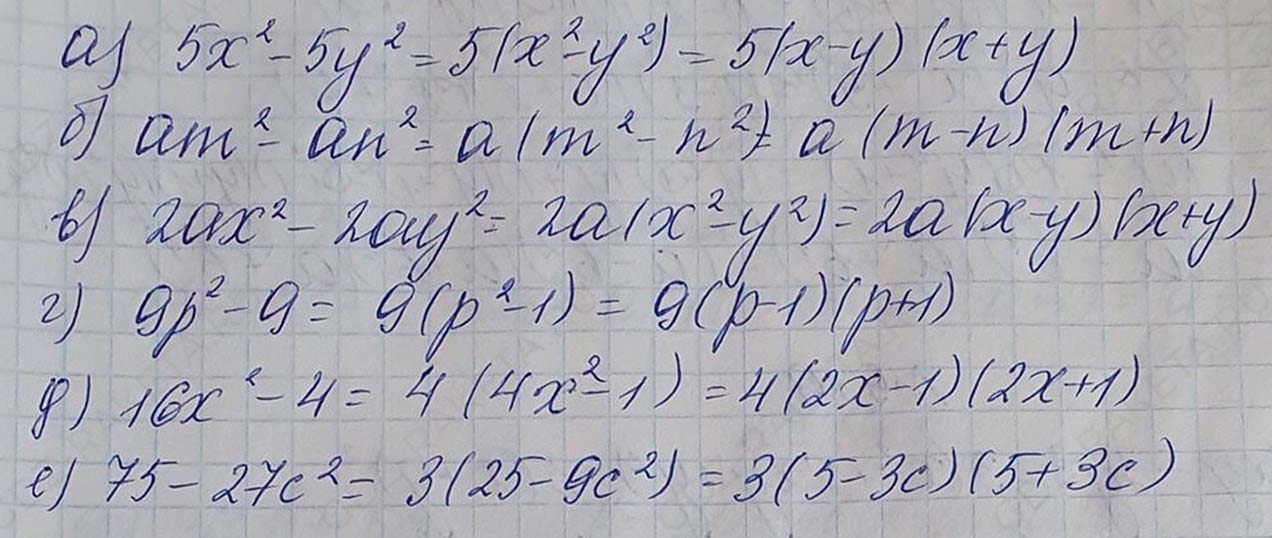 а) 5x² - 5y² = 5(x² - y²) = 5(x - y)(x + y)
б) am² - an² = a(m² - n²) = a(m - n)(m + n)
в) 2ax² - 2ay² = 2a(x² - y²) = 2a(x - y)(x + y)
г) 9p² - 9 = 9(p² - 1) = 9(p - 1)(p + 1)
д) 16x² - 4 = 4(4x² - 1) = 4(2x - 1)(2x + 1)
е) 75 - 27c² = 3(25 - 9c²) = 3(5 - 3c)(5 + 3c)